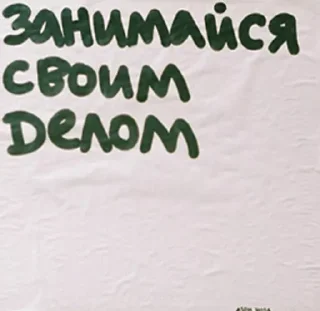 занимайся
своим
делом